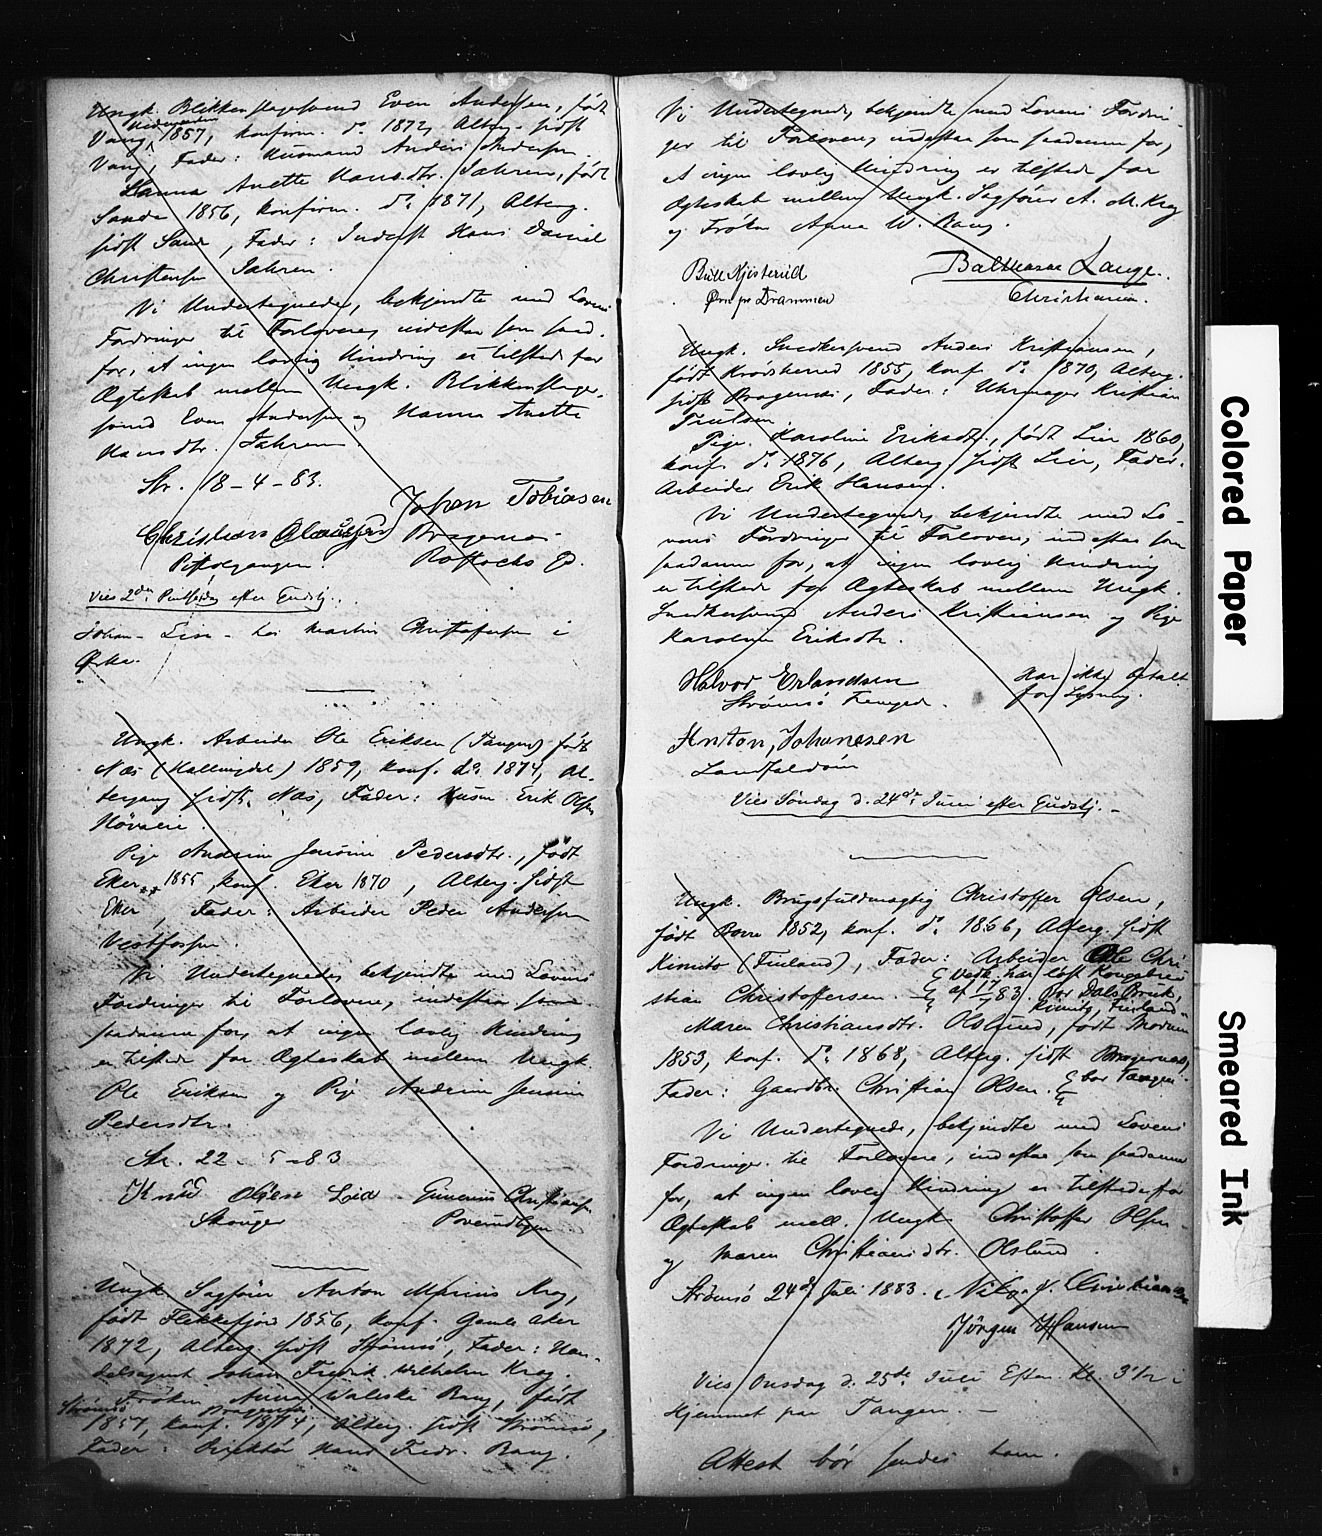 Ungk. Blikkenslagersvend Even Andersen, født
Vang 1857, konfirm. do 1872, Alterg. sidst
Vang, Fader: Husmand Anders Andersen.
Hanna Anette Hansdtr. Jahren, født
Sande 1856, konfirm. do 1871, Alterg.
sidst Sande, Fader: Inderst Hans Daniel
Christensen Jahren.
Vi Undertegnede, bekjendte med Lovens
Fordringer til Forlovere, indestaa som saad.
for, at ingen lovlig Hindring er tilstede for
Ægteskab mellem Ungk. Blikkenslager-
svend Even Andersen og Hanna Anette
Hansdtr. Jahren.
Str. 18-4-83.
Johan Tobiasen
Christian Olausen Bragernes
Vies 2den Pintsedag efter Gudstj.
Johan - Lisa - hos Martin Christofersen i
Ungk. Arbeider Ole Eriksen (Tangen) født
Næs (Hallingdal) 1859, konf. do 1874, Al-
tergang sidst Næs, Fader: Husm. Erik Olsen
Pige Andrine Jensine Pedersdtr., født
Eker 1855, konf. Eker 1870, Alterg. sidst
Eker, Fader: Arbeider Peder Andersen
Vestfossen.
Vi Undertegnede, bekjendte med Lovens
Fordringer til Forlovere, indestaa som
saadanne for, at ingen lovlig Hindring
er tilstede for Ægteskab mellem Ungk.
Ole Eriksen og Pige Andrine Jensine
Pedersdtr.
Str. 22-5-83
Knud Olsen Lia Gunerius Christiansen
Skouger
Ungk. Sagfører Anton Marius Krog,
født Flekkefjord 1856, konf. Gamle Aker
1872, Alterg. sidst Strømsø, Fader: Han-
delsagent Johan Fredrik Wilhelm Krog.
Frøken Anna Waleska Bang, født
Strømsø 1857, konf. Bragernes 1874, Alterg. sidst Strømsø,
Fader: Direktør Hans Fredr. Bang.
Vi Undertegnede, bekjendte med Lovens Fordrin-
ger til Forlovere, indestaa som saadanne for,
at ingen lovlig Hindring er tilstede for
Ægteskab mellem Ungk. Sagfører A. M. Krog
og Frøken Anna W. Bang.
Balthazar Lange.
pr Drammen Christiania.
Ungk. Snedkersvend Anders Kristiansen,
født Krødsherred 1855, konf. do 1870, Alterg.
sidst Bragernes, Fader: Uhrmager Kristian
Trulsen.
Pige Karoline Eriksdtr., født Lier 1860,
konf. do 1876, Alterg. sidst Lier, Fader:
Arbeider Erik Hansen.
Vi Undertegnede, bekjendte med Lo-
vens Fordringer til Forlovere, indestaa som
saadanne for, at ingen lovlig Hindring
er tilstede for Ægteskab mellem Ungk.
Snedkersvend Anders Kristiansen og Pige
Karoline Eriksdtr.
Halvor Erlandsen Har ikke betalt
Strømsø for Lysning.
Anton Johanesen
Landfaldøen
Vies Søndag d. 24de Juni efter Gudstj.
Ungk. Brugsfuldmægtig Christoffer Olsen,
født Borre 1852, konf. do 1866, Alterg. sidst
Kimito (Finland), Fader: Arbeider Ole Chri-
stian Christoffersen. Vedk. har løst Kongebrev
af 17/7 83. Bor Dals Bruk,
Kimito, Finland
Maren Christiansdtr. Olslund, født Modum
1853, konf. do 1868, Alterg. sidst Bragernes,
Fader: Gaardbr. Christian Olsen. bor Tangen.
Vi Undertegnede, bekjendte med Lovens
Fordringer til Forlovere, indestaa som saadanne
for, at ingen lovlig Hindring er tilstede for
Ægteskab mell. Ungk. Christoffer Olsen
og Maren Christiansdtr. Olslund.
Strømsø 24de Juli 1883. Christiansen
Jørgen Hansen
Vies Onsdag d. 25de Juli Efterm. Kl. 3 1/2 i
Hjemmet paa Tangen.
Attest bør sendes ham.
Colored Paper
Smeared Ink